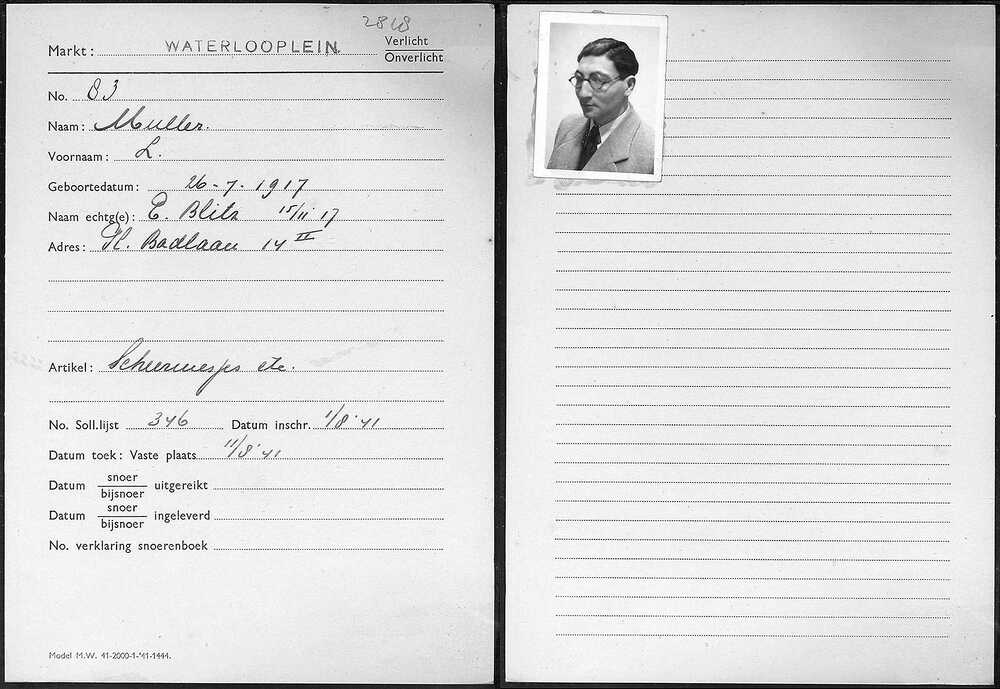 2818
Markt: WATERLOOPLEIN. Verlicht
Onverlicht
No. 83
Naam: Muller.
Voornaam: L.
Geboortedatum: 26-7.1917
Naam echtg(e): E. Blitz 15/11 17
Adres: Kl. Badlaan 14 II
Artikel: Scheermesjes etc.
No. Soll.lijst 346 Datum inschr. 1/8 '41
Datum toek: Vaste plaats 11/8 '41
Datum snoer/bijsnoer uitgereikt
Datum snoer/bijsnoer ingeleverd
No. verklaring snoerenboek
Model M.W. 41-2000-1-'41-1444.